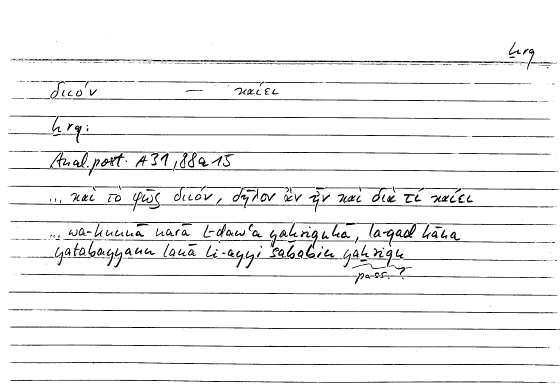 ẖrq
διιόν — καίει
ẖrq:
Anal. post. A 31, 88a15
... καὶ τὸ φῶς διιόν, δῆλον ἂν ἦν καὶ διὰ τί καίει
... wa-kunnā narā l-ḍawʾa yaẖriquhā, la-qad kāna
yatabayyanu lanā li-ayyi sababin yaẖriqu
pass. ?